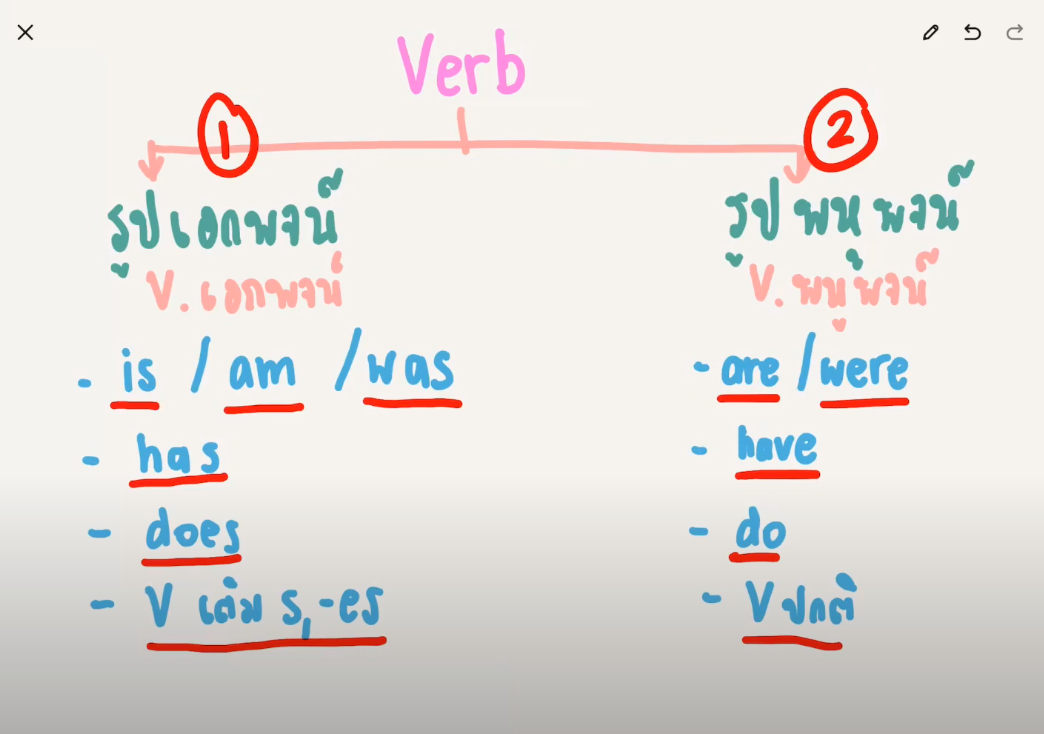 Verb
1
2
รูปเอกพจน์
V. เอกพจน์
- is / am / was
- has
- does
- V เติม s, -es
รูปพหูพจน์
V. พหูพจน์
- are / were
- have
- do
- V ปกติ